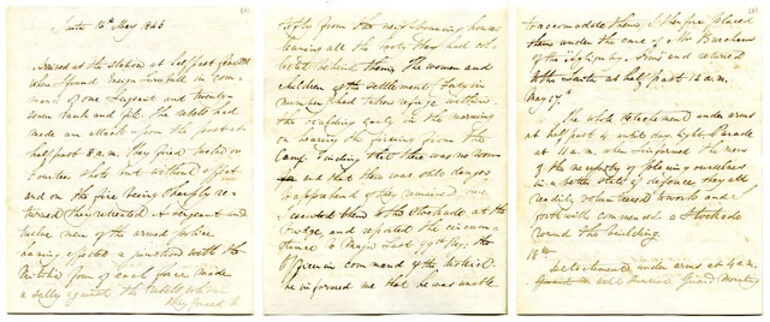 Hutt 16th May 1846
Arrived at the station at half past five PM
when I found Ensign Turnbull in com-
mand of one Sergeant and twenty-
seven rank and file. The rebels had
made an attack upon the post at
half past 8 a.m. They fired twelve or
fourteen shots but without effect
and on the fire being sharply re-
turned they retreated. A Sergeant and
twelve men of the armed police
having effected a junction with the
Militia from of each force made
a sally against the rebels whom
they forced to
from the neighbouring houses
leaving all the booty they had col-
lected behind them. The women and
children of the settlement (forty in
number) had taken refuge within
the building early in the morning
on hearing the fireing from the
Camp. Finding that there was no room
for and that there was still danger
to apprehend if they remained over
I escorted them to the Stockade at the
bridge, and reported the circum-
stance to Major Last 99th Regt. the
Officer in command of the district.
he informed me that he was unable
to accomodate them, I therefore placed
them under the care of Mr Burcham
of the "Aglionby Arms" and returned
to the Hutt at half past 12 a.m.
May 17th
The whole detachment under arms
at half past 4 until day light. Parade
at 11 a.m. when I informed the men
of the necessity of placing ourselves
in a better state of defence, they all
readily volunteered to work and I
forthwith commenced a Stockade
round the building.
18th
Detachment under arms at 4 a.m.
until sunrise Guard Mounting